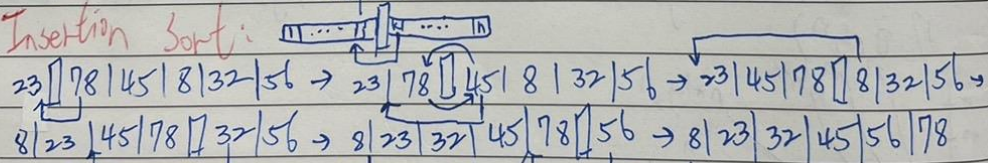 Insertion Sort: 1 ...... k ..... n
23 [] 78 | 45 | 8 | 32 | 56 → 23 | 78 [] 45 | 8 | 32 | 56 → 23 | 45 | 78 [] 8 | 32 | 56 →
8 | 23 | 45 | 78 [] 32 | 56 → 8 | 23 | 32 | 45 | 78 [] 56 → 8 | 23 | 32 | 45 | 56 | 78